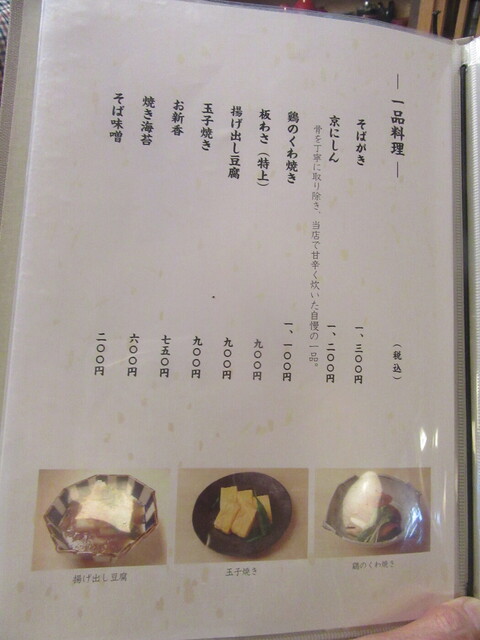 ― 一品料理 ―
（税込）
そばがき 一、三〇〇円
京にしん 一、二〇〇円
骨を丁寧に取り除き、当店で甘辛く炊いた自慢の一品。
鶏のくわ焼き 一、一〇〇円
板わさ（特上） 九〇〇円
揚げ出し豆腐 九〇〇円
玉子焼き 九〇〇円
お新香 七五〇円
焼き海苔 六〇〇円
そば味噌 二〇〇円
揚げ出し豆腐
玉子焼き
鶏のくわ焼き